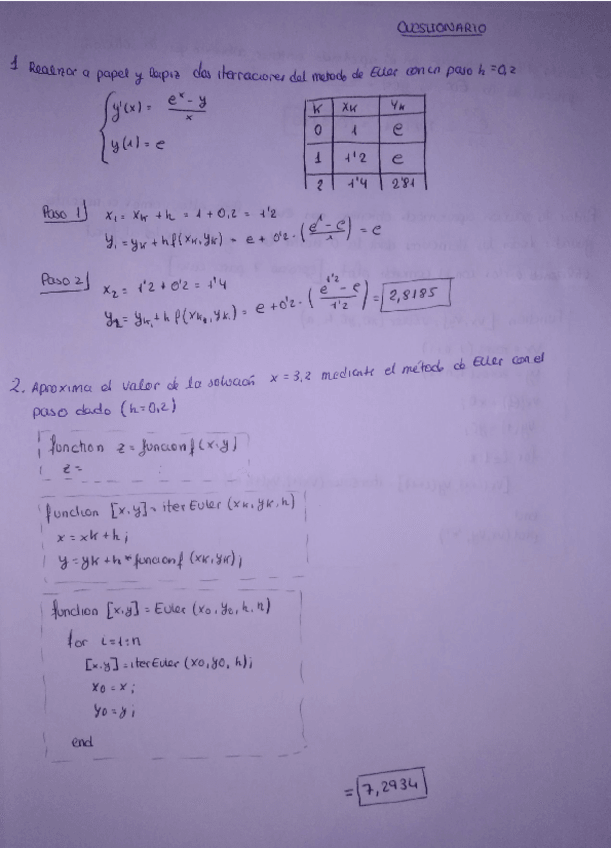 CUESTIONARIO
1 Realizar a papel y lapiz dos iterraciones del metodo de Euler con un paso h=0,2
y'(x) = (e^x - y)/x
y(1) = e
K xK yK
0 1 e
1 1'2 e
2 1'4 2'81
Paso 1) x₁ = xK + h = 1 + 0,2 = 1'2
y₁ = yK + h f(xK, yK) = e + 0'2 · ((e^1 - e)/1) = e
Paso 2) x₂ = 1'2 + 0'2 = 1'4
y₂ = yK₁ + h f(xK₁, yK₁) = e + 0'2 · ((e^1'2 - e)/1'2) = 2,8185
2. Aproxima el valor de la solución x = 3,2 mediante el método de Euler con el
paso dado (h=0,2)
function z = funcionf(x,y)
z =
function [x,y] = iterEuler(xK, yK, h)
x = xK + h;
y = yK + h*funcionf(xK, yK);
function [x,y] = Euler(x0, y0, h, n)
for i=1:n
[x,y] = iterEuler(x0, y0, h);
x0 = x;
y0 = y;
end
= 7,2934